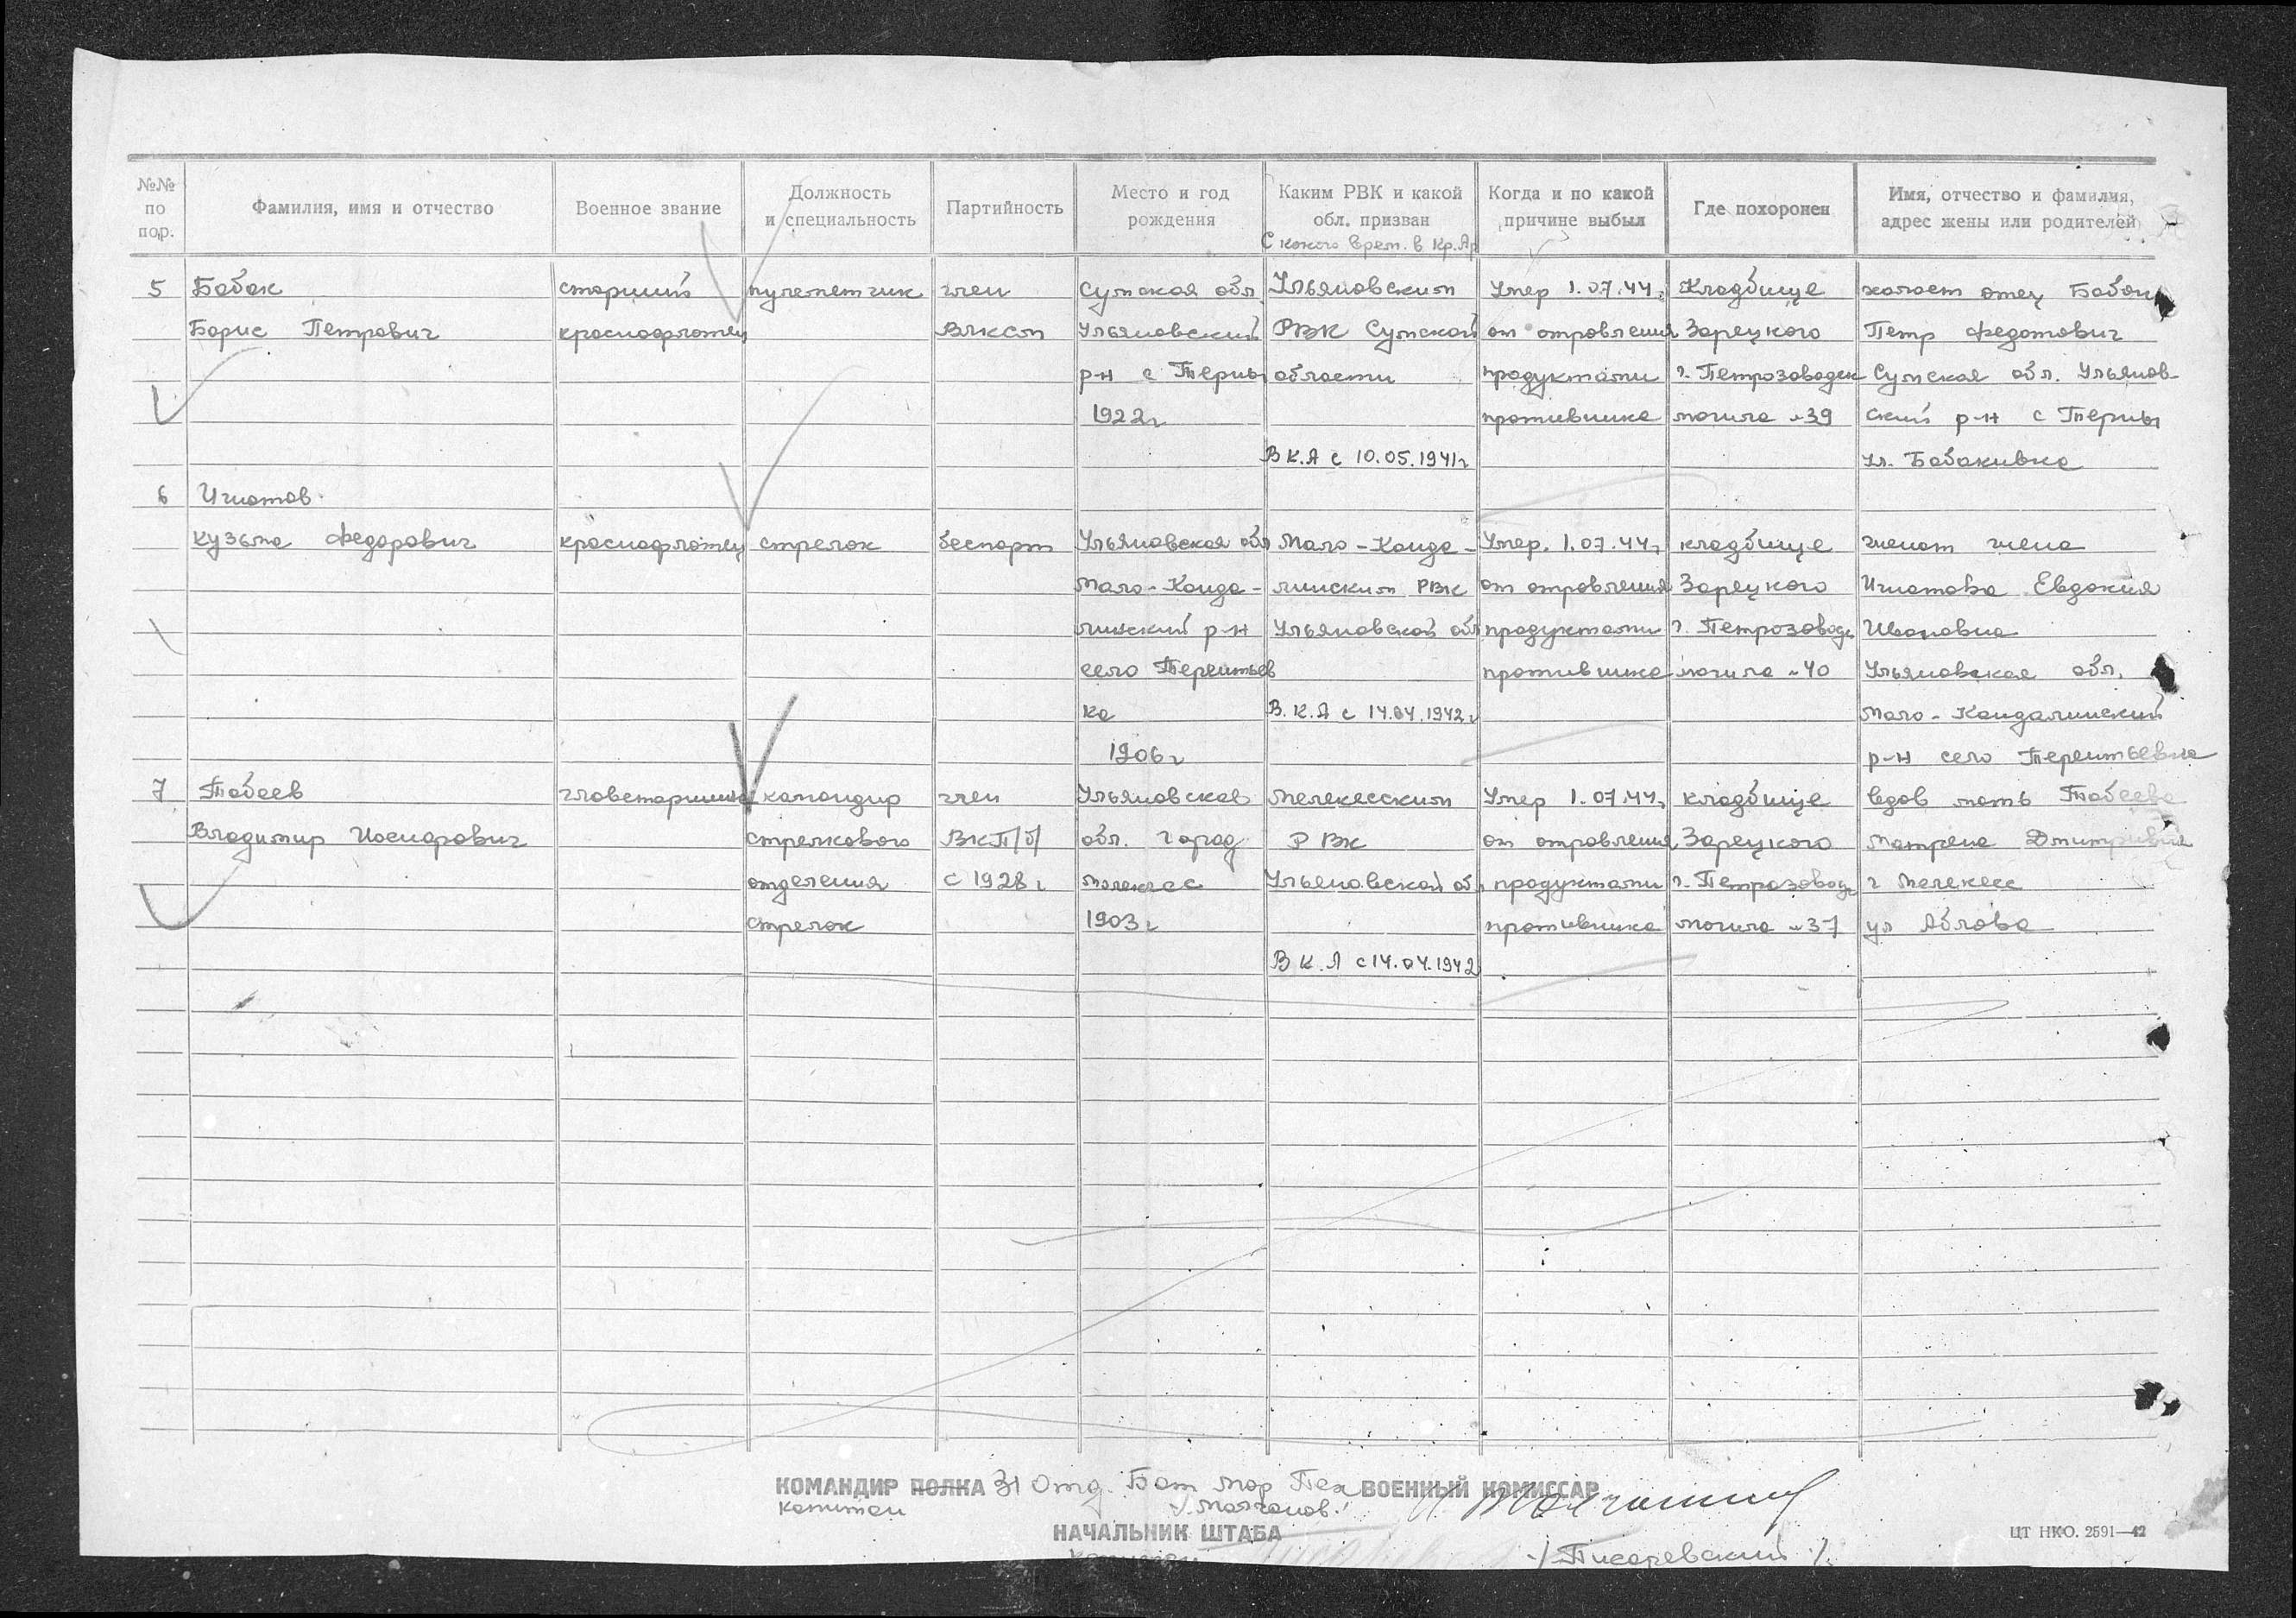 №№ по пор.
Фамилия, имя и отчество
Военное звание
Должность и специальность
Партийность
Место и год рождения
Каким РВК и какой обл. призван
С какого врем. в Кр. Ар
Когда и по какой причине выбыл
Где похоронен
Имя, отчество и фамилия, адрес жены или родителей
5 Бабак старший пулеметчик член Сумская обл. Ульяновским Умер 1.07.44г. Кладбище холост отец Бабак
Борис Петрович краснофлотец ВЛКСМ Ульяновский РВК Сумской от отравления Зарецкого Петр Федотович
р-н с Терны области продуктами г. Петрозаводск Сумская обл. Ульянов-
1922г противника могила №39 ский р-н с Терны
В К.А с 10.05.1941г ул. Бабакивка
6 Игнатов
Кузьма Федорович краснофлотец стрелок беспарт Ульяновская обл Мало-Канда- Умер. 1.07.44г кладбище женат жена
Мало-Канда- линским РВК от отравления Зарецкого Игнатова Евдокия
линский р-н Ульяновской обл продуктами г. Петрозаводск Ивановна
село Терентьев противника могила №40 Ульяновская обл.
ка В. К. А с 14.04.1942г Мало-Кандалинский
1906г р-н село Терентьевка
7 Табеев главстаршина командир член Ульяновская Мелекесским Умер 1.07.44г кладбище вдов мать Табеева
Владимир стрелкового ВКП/б/ обл. город РВК от отравления Зарецкого Матрена Дмитривна
отделения с 1928г Мелекес Ульяновской об. продуктами г. Петрозаводск г Мелекесс
стрелок 1903г противника могила №37 ул Аблова
В К. А с 14.04.1942
КОМАНДИР ПОЛКА 31 Отд. Бат Мор Пех ВОЕННЫЙ КОМИССАР
капитан /Молчанов/
НАЧАЛЬНИК ШТАБА
/Писаревский/
ЦТ НКО. 2591—42